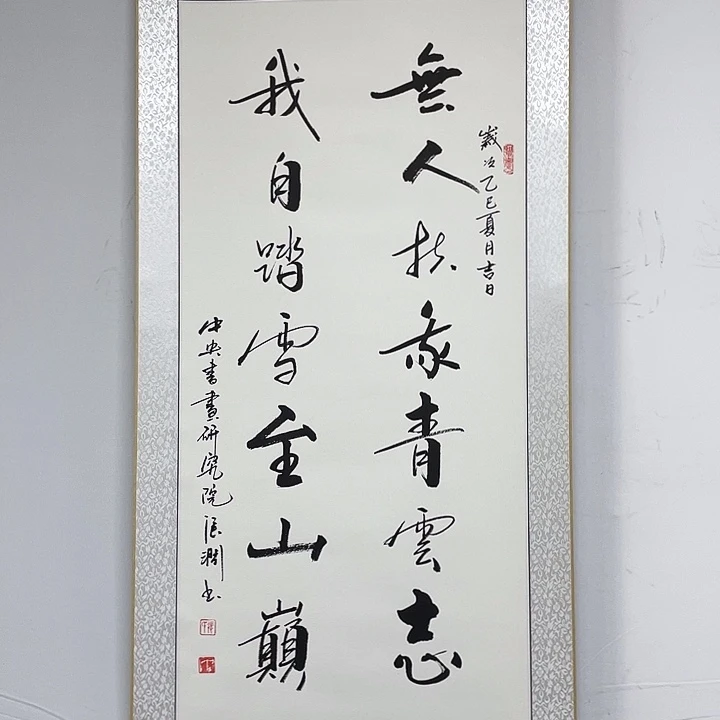 歲次乙巳夏月吉日
無人扶我青雲志
我自踏雪至山巔
中央書畫研究院張淵書